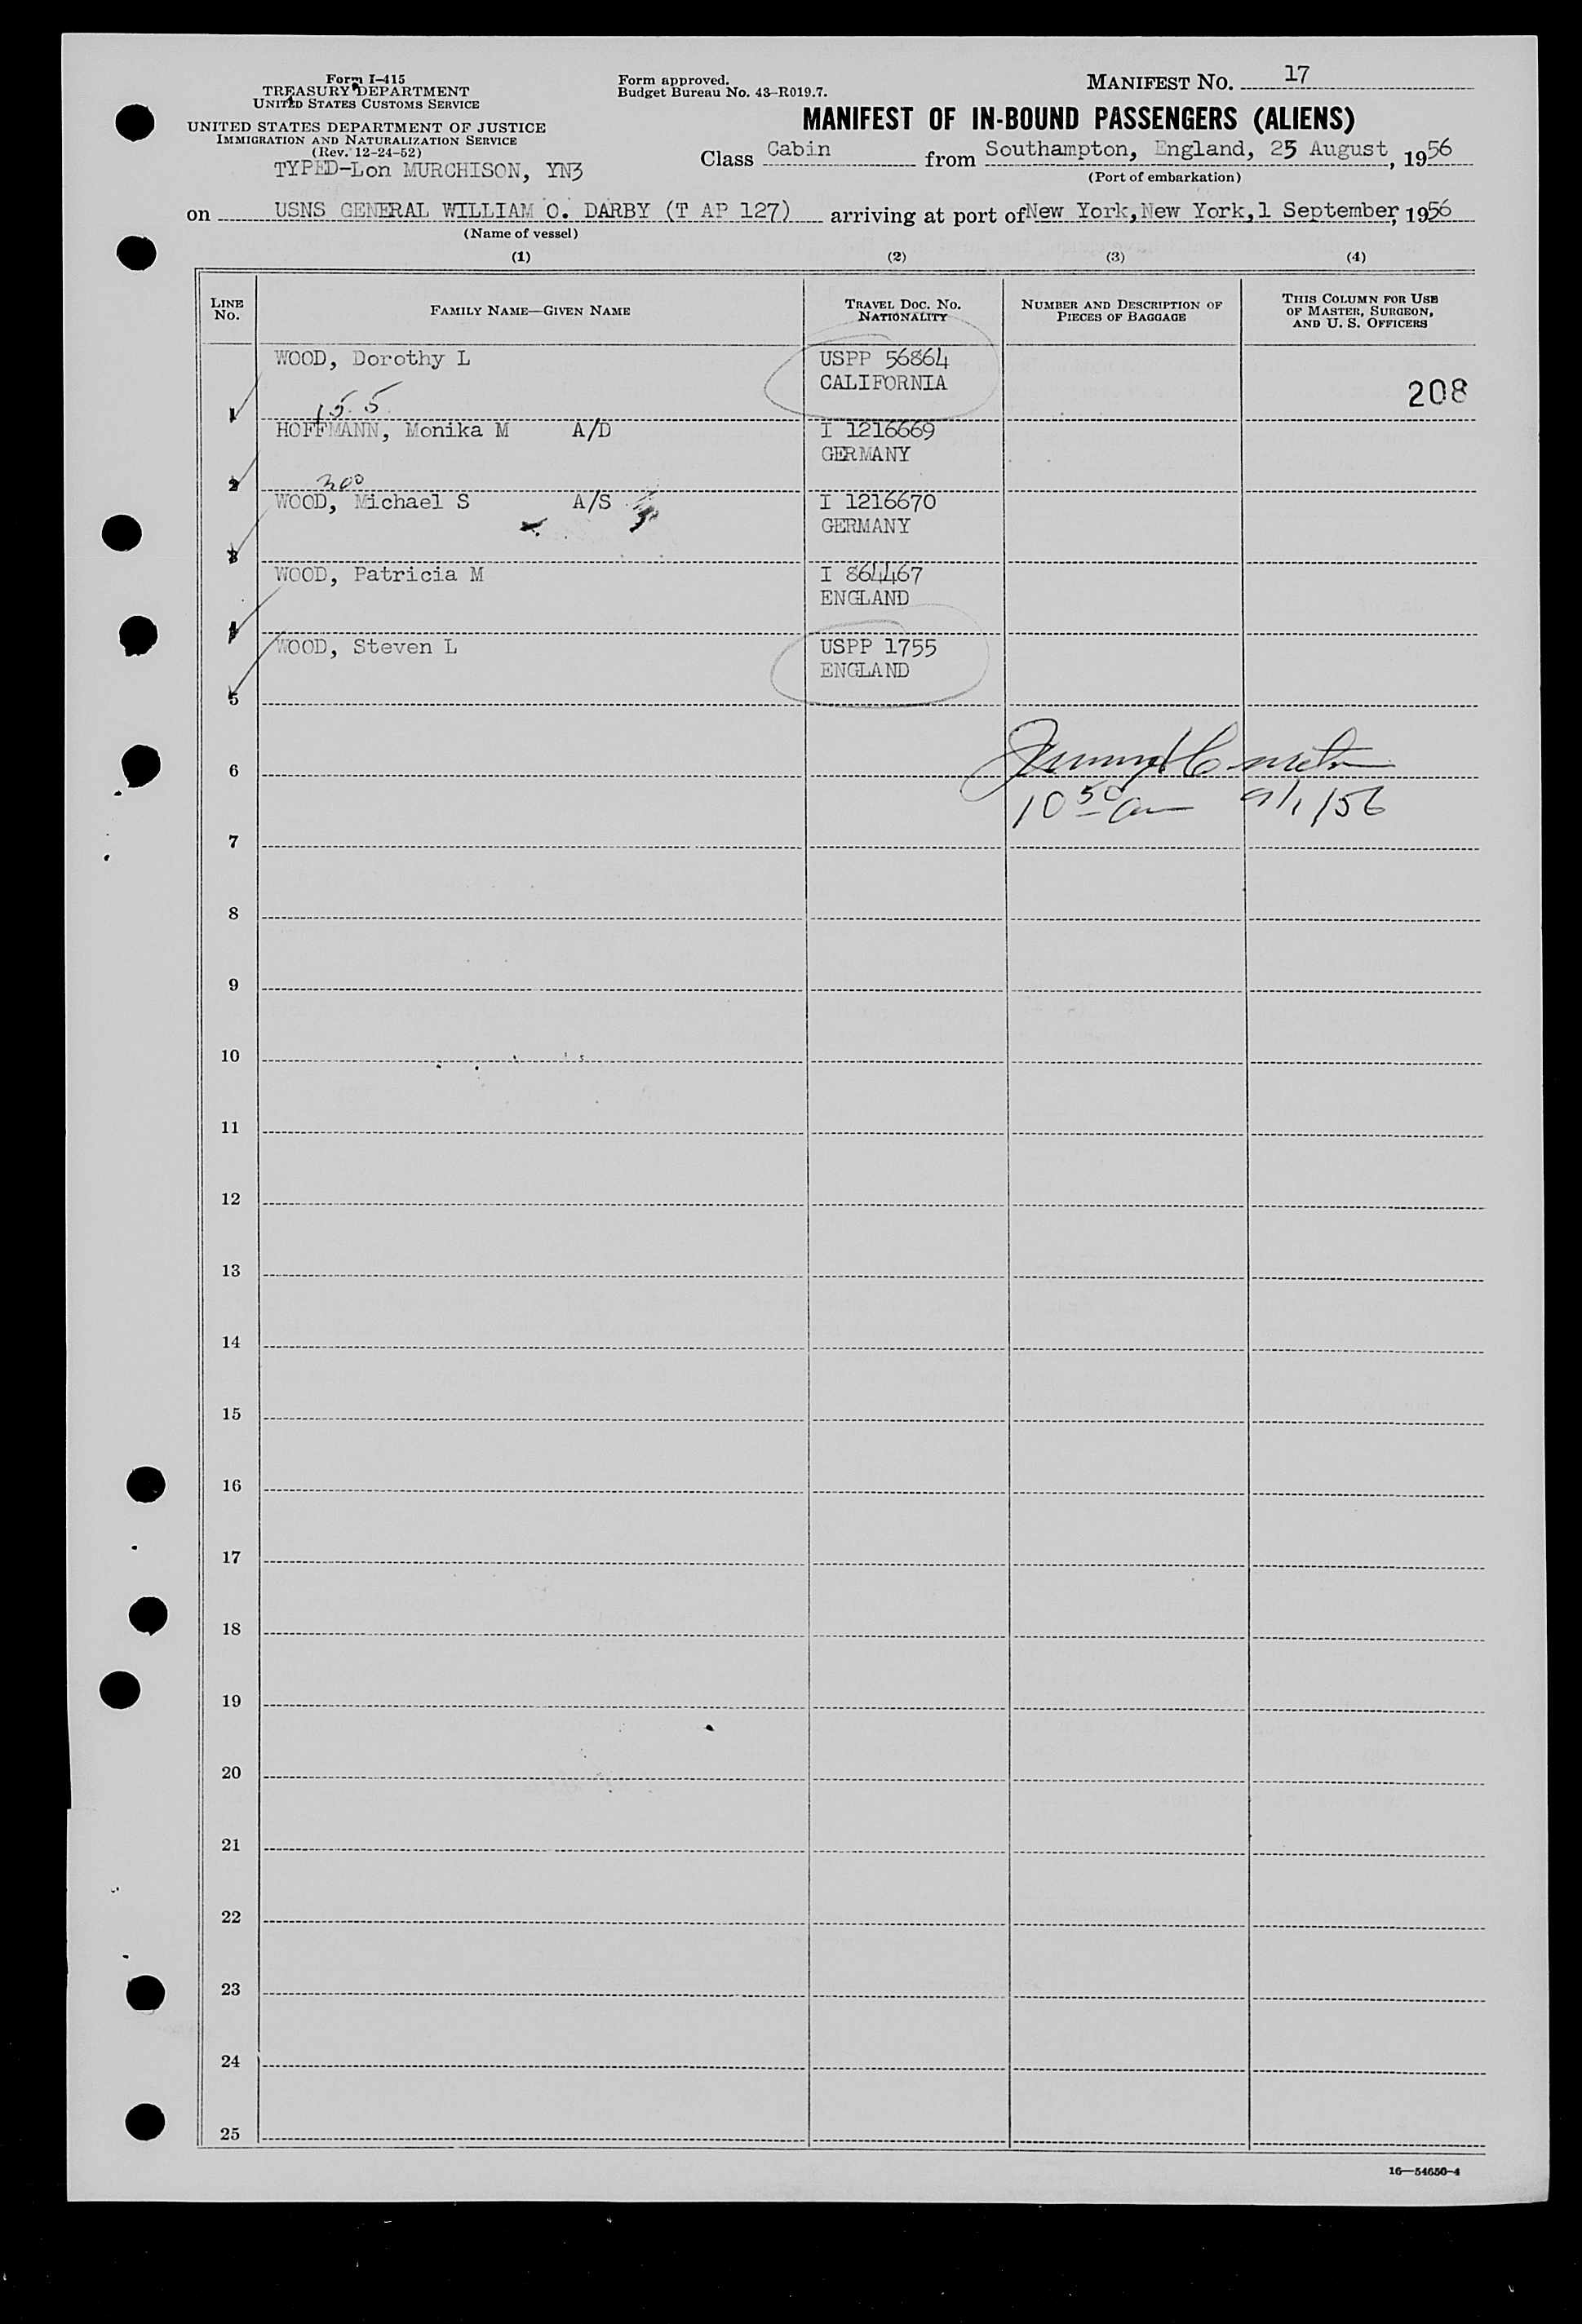 Form I-415
TREASURY DEPARTMENT
UNITED STATES CUSTOMS SERVICE
UNITED STATES DEPARTMENT OF JUSTICE
IMMIGRATION AND NATURALIZATION SERVICE
(Rev. 12-24-52)
TYPED-Lon MURCHISON, YN3
Form approved.
Budget Bureau No. 43-R019.7.
MANIFEST NO. 17
MANIFEST OF IN-BOUND PASSENGERS (ALIENS)
Class Cabin from Southampton, England, 25 August, 1956
(Port of embarkation)
on USNS GENERAL WILLIAM O. DARBY (T AP 127) arriving at port of New York, New York, 1 September, 1956
(Name of vessel)
(1) (2) (3) (4)
LINE NO. FAMILY NAME—GIVEN NAME TRAVEL DOC. NO. NATIONALITY NUMBER AND DESCRIPTION OF PIECES OF BAGGAGE THIS COLUMN FOR USE OF MASTER, SURGEON, AND U. S. OFFICERS
WOOD, Dorothy L USPP 56864
CALIFORNIA
208
1 155
HOFFMANN, Monika M A/D I 1216669
GERMANY
2 300
WOOD, Michael S A/S I 1216670
GERMANY
3
WOOD, Patricia M I 864467
ENGLAND
4
WOOD, Steven L USPP 1755
ENGLAND
5
6
10 50 am 9/1/56
7
8
9
10
11
12
13
14
15
16
17
18
19
20
21
22
23
24
25
16—54650-4